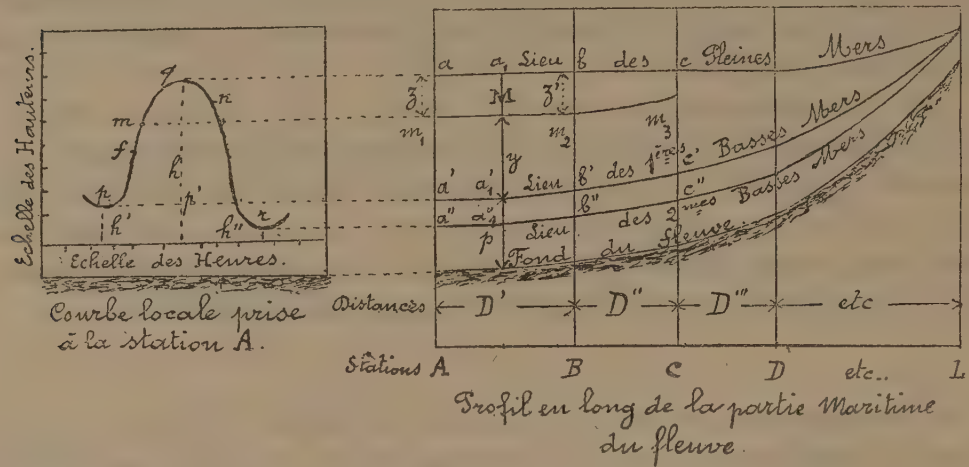 Echelle des Hauteurs.
q
m
n
f
h
p
p'
h'
h"
r
Echelle des Heures.
Courbe locale prise
à la station A.
a a₁ Lieu b des c Pleines Mers
z M z'
m₁ m₂ m₃
y
a' a'₁ Lieu b' des 1ères c' Basses Mers
a" a"₁ Lieu b" des 2mes c" Basses Mers
p
Fond du fleuve
Distances D' D" D''' etc
Stations A B C D etc.. L
Profil en long de la partie Maritime
du fleuve.